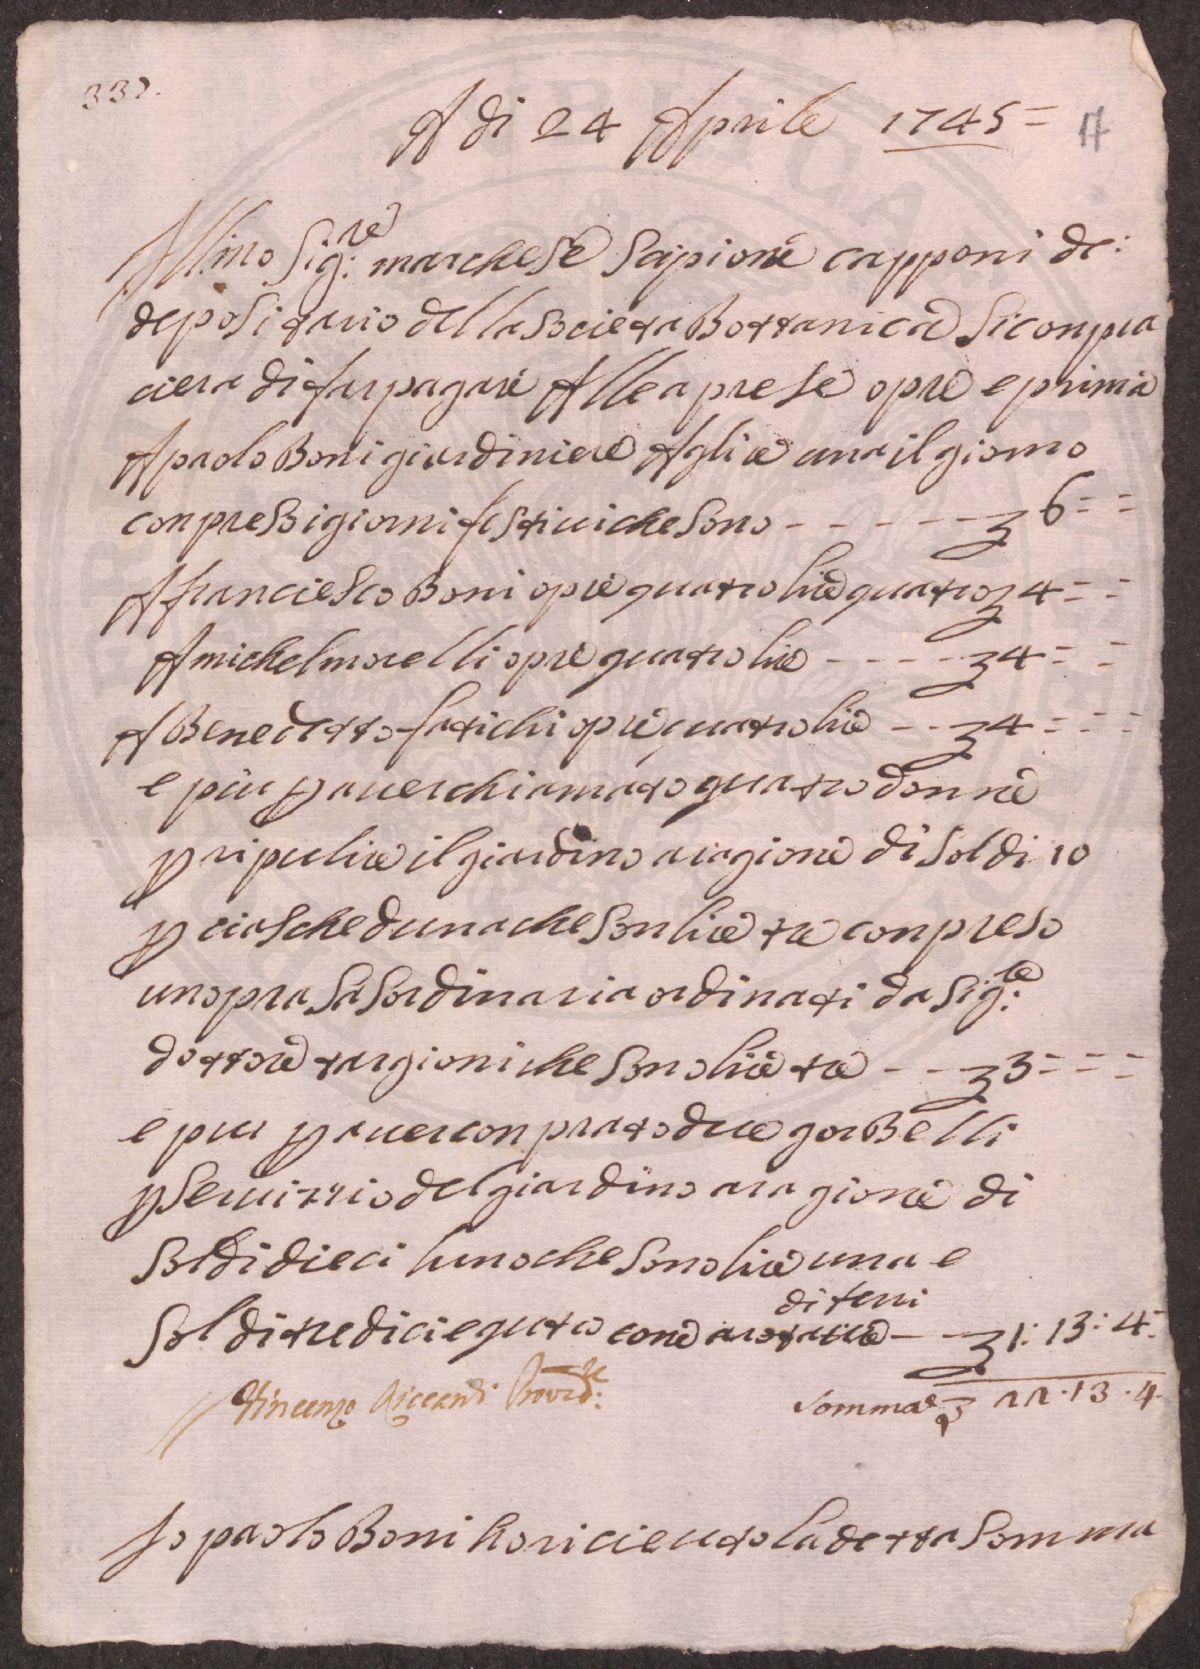 332.
A di 24 Aprile 1745 =
Ill.mo Sig:re marchese Scipione capponi de:
depositario della Societa Bottanica Si conpia
ciera di far pagare Alle aprese opre e prima
A paolo Boni giardiniere A lire una il giorno
conpreso i giorni festiui che Sono - - - - - - 6 = =
A franciesco Boni opre quatro lire quatro 4 = =
A michel morelli opre quatro lire - - - - - 4 = =
A Benedetto fatichi opre quatro lire - - - 4 = = =
e piu p auer chiamato quatro donne
p ripulire il giardino a ragione di Soldi 10
p ciascheduna che Son lire tre conpreso
unopra Sasordinaria ordinati da Sig:re
dottore targioni che Sono lire tre - - - 3 = = =
e piu p auer conprato due gorBelli
p Seruizzio del giardino a ragione di
Soldi dieci luno che Sono lire una e
di ferri
Soldi tredici e quatro come arotature - - - 1: 13: 4:
Vincenzo Riccardi Provved:re
Somma 22 . 13 . 4
Io paolo Boni ho riceuuto la detta Somma